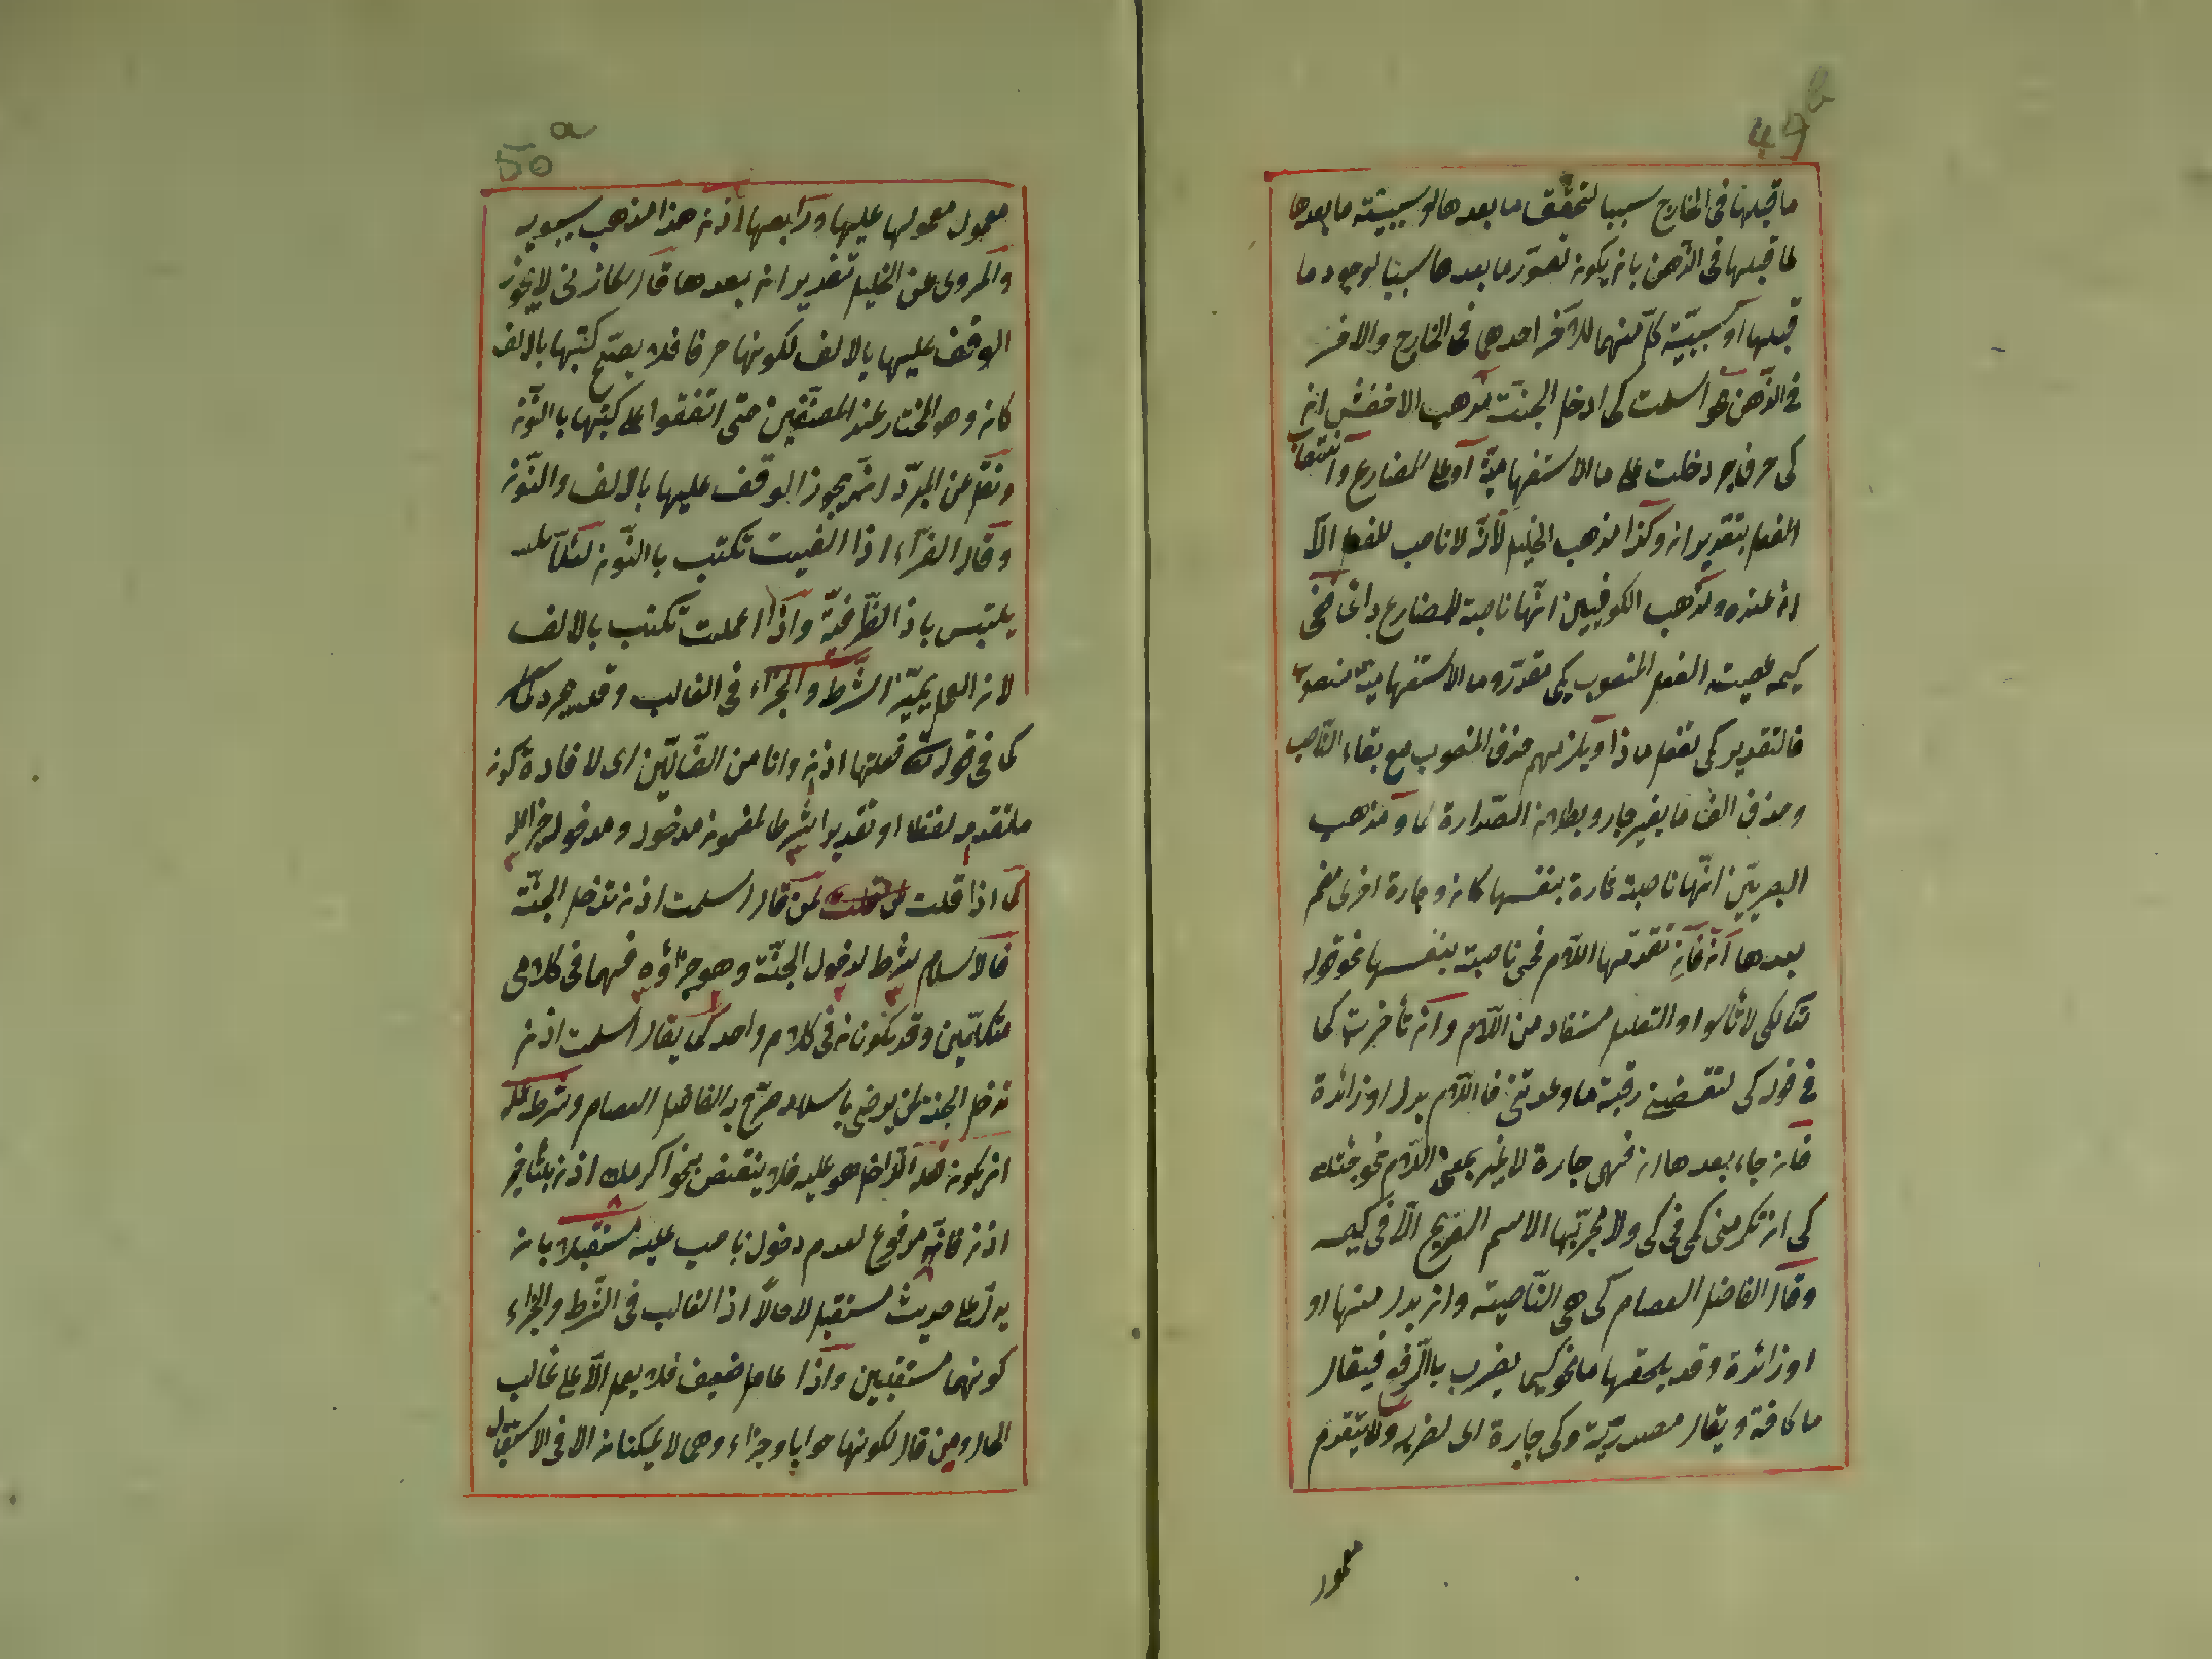 49b
ما قبلها فى الخارج سببا لتحقق ما بعدها او سببية ما بعدها
لما قبلها فى الذهن بان يكون تصور ما بعدها سببا لوجود ما
قبلها او سببية كل منهما للآخر احدهما فى الخارج والاخر
فى الذهن نحو اسلمت كى ادخل الجنة مذهب الاخفش ان
كى حرف جر دخلت على ما الاستفهامية او على المضارع وانتصاب
الفعل بتقدير ان وكذا مذهب الخليل لانه لا ناصب للفعل الا
ان عنده ومذهب الكوفيين انها ناصبة للمضارع دائما فمعنى
كيمه عصيت الفعل المنصوب بكى مقدر وما الاستفهامية منصوب
فالتقدير كى تفعل ماذا ويلزمهم حذف المنصوب مع بقاء الناصب
وحذف الف ما بغير جار وبطلان الصدارة لما ومذهب
البصريين انها ناصبة تارة بنفسها كان وجارة اخرى مضمر
بعدها ان فان تقدمها اللام فهى ناصبة بنفسها نحو قوله
تعالى لكى لا تأسوا والتعليل مستفاد من اللام وان تأخرت كما
فى قوله كى لتقضينى رقية ما وعدتنى فاللام بدل او زائدة
فان جاء بعدها ان فهى جارة لا غير بمعنى اللام نحو جئتك
كى ان تكرمنى كمى فى كى ولا تجر بها الاسم الصريح الا فى كيمه
وقال الفاضل العصام كى هى الناصبة وان بدل منها او
او زائدة وقد يلحقها ما نحو كيما يضرب بالرفع فيقال
ما كافة ويقال مصدرية وكى جارة اى لضربه ولا يتقدم
معمول
50a
معمول معمولها عليها ورابعها اذن هذا مذهب سيبويه
والمروى عن الخليل تقدير ان بعدها قال المازنى لا يجوز
الوقف عليها بالالف لكونها حرفا فلا يصح كتبها بالالف
كان وهو المختار عند المصنفين حتى اتفقوا على كتبها بالنون
ونقل عن المبرد انه يجوز الوقف عليها بالالف والنون
وقال الفراء اذا الغيت تكتب بالنون لئلا
يلتبس باذ الظرفية واذا اعملت تكتب بالالف
لان العمل يميز الشرط والجزاء فى الغالب وقد يجرد
كما فى قوله تعالى فعلتها اذن وانا من الضالين اى لافادة كون
ما تقدم لفظا او تقديرا شرطا لمضمون مدخول ومدخوله جزاء له
كما اذا قلت لمن قال اسلمت اذن تدخل الجنة
فالاسلام شرط لدخول الجنة وهو جزاؤه فهما فى كلامى
متكلمين وقد يكونان فى كلام واحد كما يقال اسلمت اذن
تدخل الجنة لمن يرضى باسلامه صرح به الفاضل العصام وشرط عمله
ان يكون الفعل الداخل هو عليه فلا ينتقض بنحو اكرمك اذن بتأخير
اذن فانه مرفوع لعدم دخول ناصب عليه مستقبلا بان
يدل على حدث مستقبل لا حالا اذ الغالب فى الشرط والجزاء
كونهما مستقبلين واذا عامل ضعيف فلا يعمل الا على غالب
الحال ومن قال لكونها جوابا وجزاء وهى لا يمكنان الا فى الاستقبال